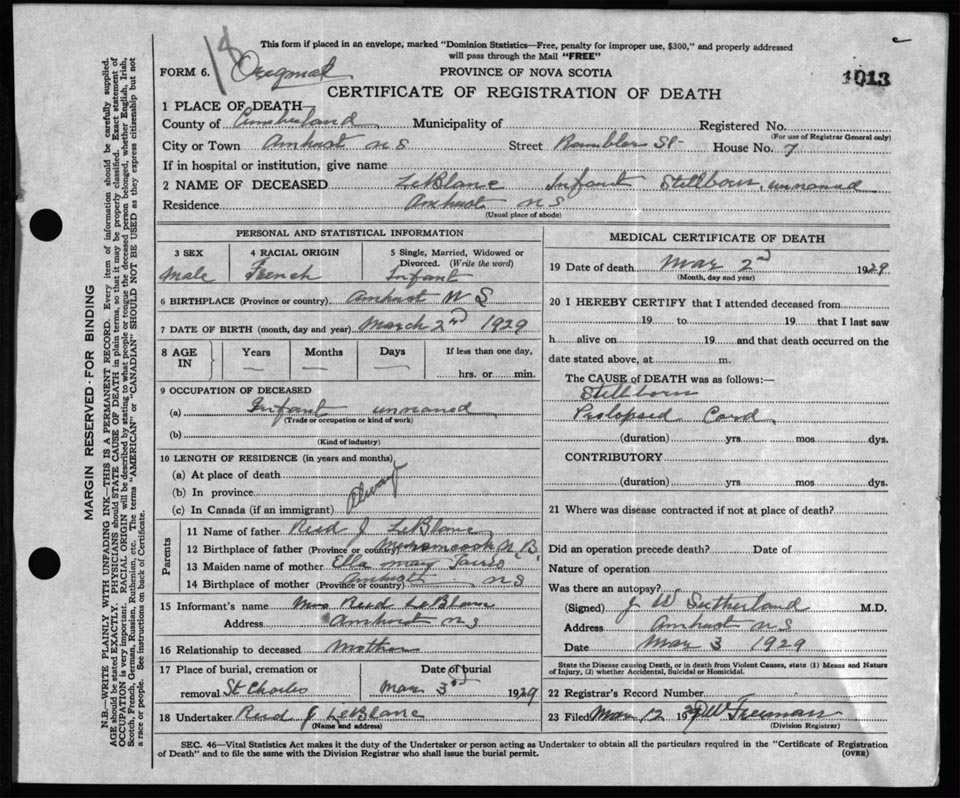 This form if placed in an envelope, marked "Dominion Statistics—Free, penalty for improper use, $300," and properly addressed
will pass through the Mail "FREE"
18
FORM 6. Original PROVINCE OF NOVA SCOTIA 1013
CERTIFICATE OF REGISTRATION OF DEATH
1 PLACE OF DEATH—
County of Cumberland Municipality of Registered No.
(For use of Registrar General only)
City or Town Amherst N S Street Rambler St House No. 7
If in hospital or institution, give name
2 NAME OF DECEASED LeBlanc Infant Stillborn, unnamed
Residence Amherst N S
(Usual place of abode)
PERSONAL AND STATISTICAL INFORMATION
3 SEX 4 RACIAL ORIGIN 5 Single, Married, Widowed or
Divorced. (Write the word)
Male French Infant
6 BIRTHPLACE (Province or country) Amherst N S
7 DATE OF BIRTH (month, day and year) March 2nd 1929
8 AGE IN Years Months Days If less than one day,
— — — hrs. or min.
9 OCCUPATION OF DECEASED
(a) Infant unnamed
(Trade or occupation or kind of work)
(b)
(Kind of industry)
10 LENGTH OF RESIDENCE (in years and months)
(a) At place of death
(b) In province
(c) In Canada (if an immigrant)
Parents
11 Name of father Reid J LeBlanc
12 Birthplace of father (Province or country) N B
13 Maiden name of mother Ella May
14 Birthplace of mother (Province or country) Amherst N S
15 Informant's name Mrs Reid LeBlanc
Address Amherst N S
16 Relationship to deceased Mother
17 Place of burial, cremation or Date of burial
removal St Charles Mar 3rd 1929
18 Undertaker Reid J LeBlanc
(Name and address)
MEDICAL CERTIFICATE OF DEATH
19 Date of death Mar 2nd 1929
(Month, day and year)
20 I HEREBY CERTIFY that I attended deceased from
19 to 19 that I last saw
h alive on 19 and that death occurred on the
date stated above, at m.
The CAUSE of DEATH was as follows:—
Stillborn
Prolapsed Cord
(duration) yrs. mos dys.
CONTRIBUTORY
(duration) yrs. mos. dys.
21 Where was disease contracted if not at place of death?
Did an operation precede death? Date of
Nature of operation
Was there an autopsy?
(Signed) J W Sutherland M.D.
Address Amherst N S
Date Mar 3 1929
State the Disease causing Death, or in death from Violent Causes, state (1) Means and Nature
of Injury, (2) whether Accidental, Suicidal or Homicidal.
22 Registrar's Record Number
23 Filed Mar 12 1929 Freeman
(Division Registrar)
SEC. 46—Vital Statistics Act makes it the duty of the Undertaker or person acting as Undertaker to obtain all the particulars required in the "Certificate of Registration
of Death" and to file the same with the Division Registrar who shall issue the burial permit. (OVER)
MARGIN RESERVED - FOR BINDING
N.B.—WRITE PLAINLY WITH UNFADING INK—THIS IS A PERMANENT RECORD. Every item of information should be carefully supplied.
AGE should be stated EXACTLY. PHYSICIANS should STATE CAUSE OF DEATH in plain terms, so that it may be properly classified. Exact statement of
OCCUPATION is very important. RACIAL ORIGIN will be described by stating to what people or tongue the deceased person belonged, whether English, Irish,
Scotch, French, German, Russian, Ruthenian, etc. The terms "AMERICAN" or "CANADIAN" SHOULD NOT BE USED as they express citizenship but not
a race or people. See instructions on back of Certificate.